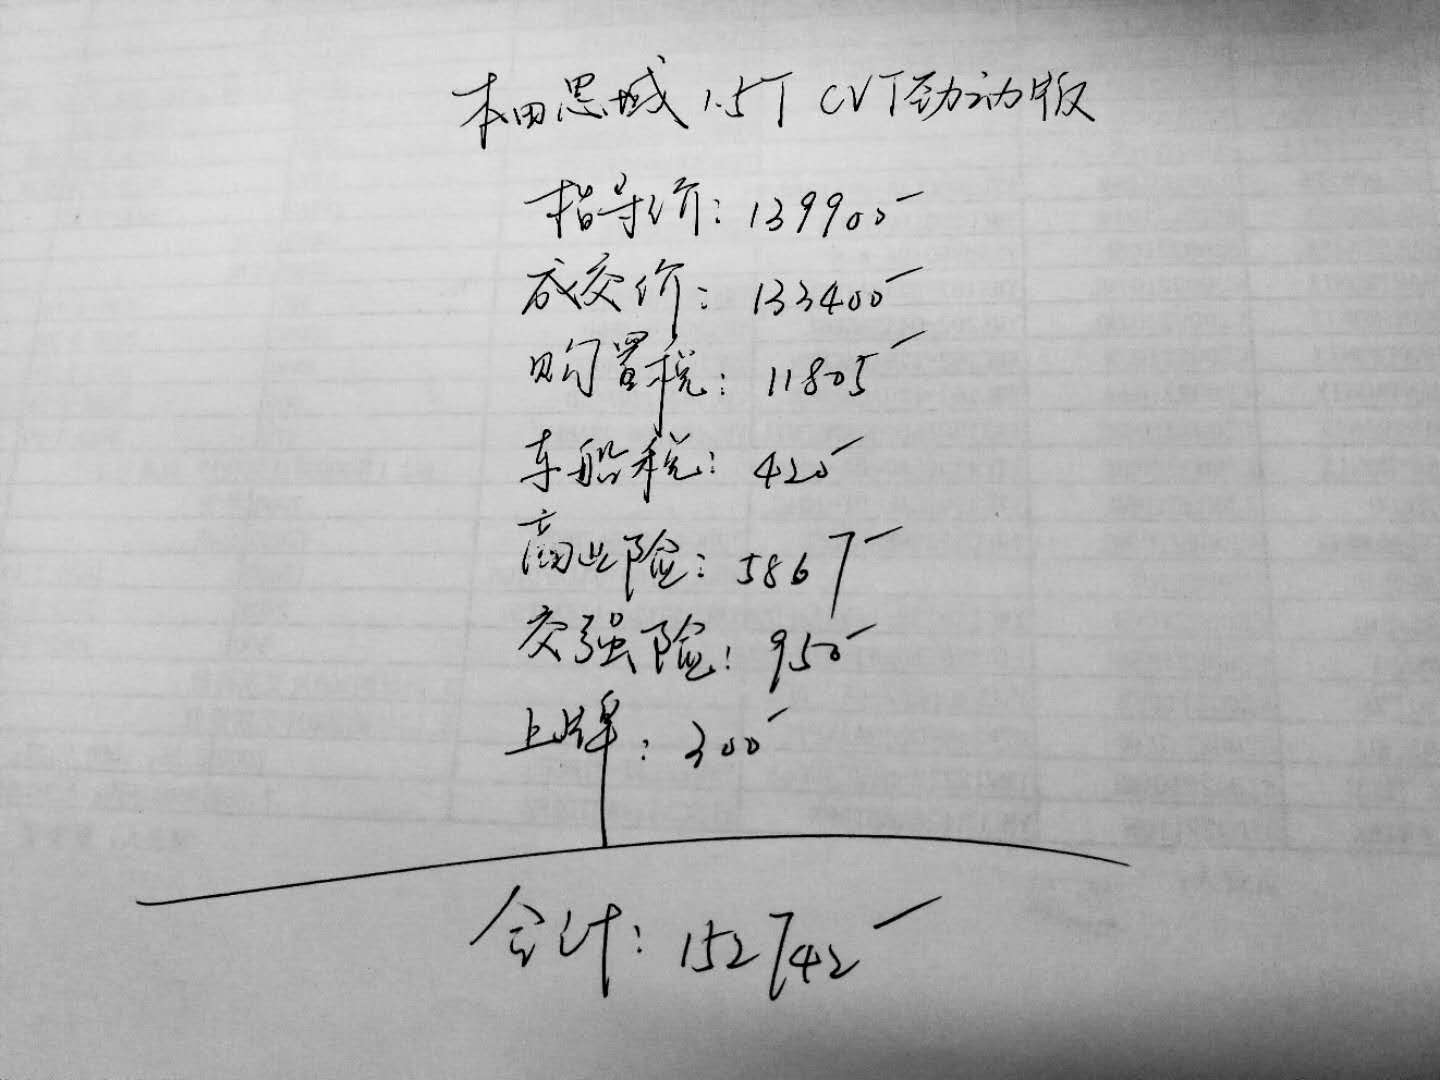 本田思域 1.5T CVT劲动版
指导价：139900
成交价：133400
购置税：11805
车船税：420
商业险：5867
交强险：950
上牌：300
合计：152742